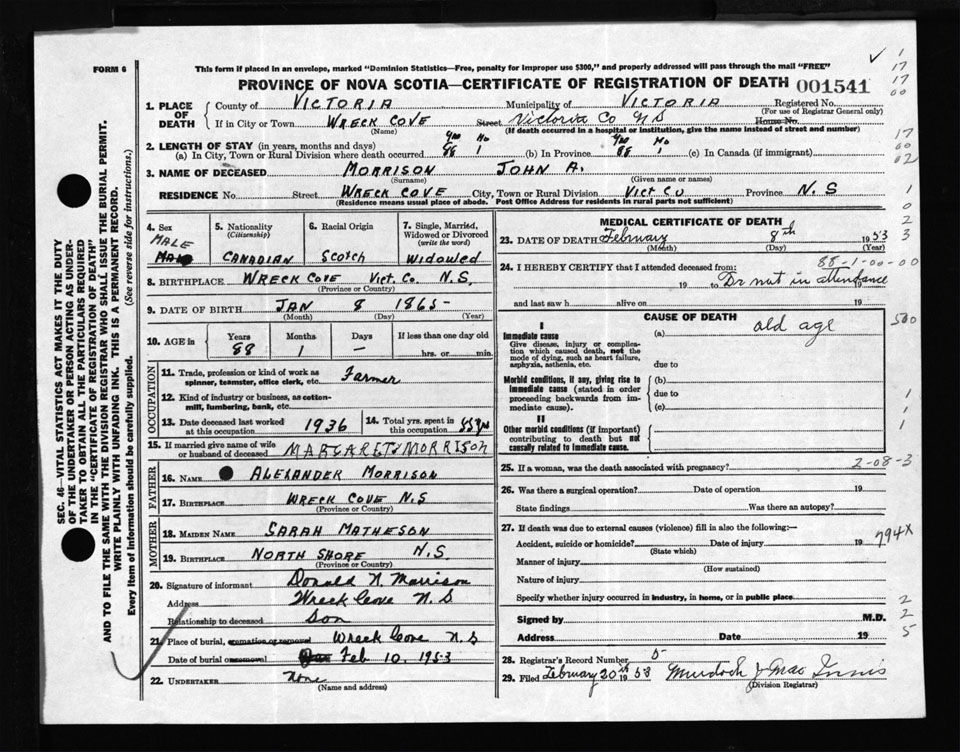 FORM 6
This form if placed in an envelope, marked "Dominion Statistics—Free, penalty for improper use $300," and properly addressed will pass through the mail "FREE"
PROVINCE OF NOVA SCOTIA—CERTIFICATE OF REGISTRATION OF DEATH 001541
1. PLACE OF DEATH County of VICTORIA Municipality of VICTORIA Registered No.
(For use of Registrar General only)
If in City or Town WRECK COVE Street Victoria Co N S House No.
(Name) (If death occurred in a hospital or institution, give the name instead of street and number)
2. LENGTH OF STAY (in years, months and days)
(a) In City, Town or Rural Division where death occurred 88 1 (b) In Province 88 1 (c) In Canada (if immigrant)
3. NAME OF DECEASED MORRISON JOHN A.
(Surname) (Given name or names)
RESIDENCE No. Street WRECK COVE City, Town or Rural Division VICT CO Province N. S
(Residence means usual place of abode. Post Office Address for residents in rural parts not sufficient)
SEC. 46—VITAL STATISTICS ACT MAKES IT THE DUTY
OF THE UNDERTAKER OR PERSON ACTING AS UNDER-
TAKER TO OBTAIN ALL THE PARTICULARS REQUIRED
IN THE "CERTIFICATE OF REGISTRATION OF DEATH"
AND TO FILE THE SAME WITH THE DIVISION REGISTRAR WHO SHALL ISSUE THE BURIAL PERMIT.
WRITE PLAINLY WITH UNFADING INK. THIS IS A PERMANENT RECORD.
Every item of information should be carefully supplied. (See reverse side for instructions.)
4. Sex
MALE
5. Nationality
(Citizenship)
CANADIAN
6. Racial Origin
Scotch
7. Single, Married, Widowed or Divorced
(write the word)
Widowed
8. BIRTHPLACE WRECK COVE VICT. CO. N.S.
(Province or Country)
9. DATE OF BIRTH JAN 8 1865
(Month) (Day) (Year)
10. AGE in Years Months Days If less than one day old
88 1 — hrs. or min.
OCCUPATION
11. Trade, profession or kind of work as spinner, teamster, office clerk, etc. Farmer
12. Kind of industry or business, as cotton-mill, lumbering, bank, etc.
13. Date deceased last worked at this occupation 1936
14. Total yrs. spent in this occupation
15. If married give name of wife or husband of deceased MARGARET MORRISON
FATHER
16. NAME ALEXANDER MORRISON
17. BIRTHPLACE WRECK COVE N.S
(Province or Country)
MOTHER
18. MAIDEN NAME SARAH MATHESON
19. BIRTHPLACE NORTH SHORE N.S.
(Province or Country)
20. Signature of informant Donald N. Morrison
Address Wreck Cove N. S
Relationship to deceased Son
21. Place of burial, cremation or removal Wreck Cove N. S
Date of burial or removal Feb 10. 1953
22. UNDERTAKER none
(Name and address)
MEDICAL CERTIFICATE OF DEATH
23. DATE OF DEATH February 8th 1953
(Month) (Day) (Year)
24. I HEREBY CERTIFY that I attended deceased from: 88-1-00-00
19 to Dr not in attendance
and last saw h alive on 19
CAUSE OF DEATH
I
Immediate cause (a) old age
Give disease, injury or complication which caused death, not the mode of dying, such as heart failure, asphyxia, asthenia, etc. due to
Morbid conditions, if any, giving rise to immediate cause (stated in order proceeding backwards from immediate cause). (b)
due to
(c)
II
Other morbid conditions (if important) contributing to death but not causally related to immediate cause.
25. If a woman, was the death associated with pregnancy? 2-08-3
26. Was there a surgical operation? Date of operation 19
State findings Was there an autopsy?
27. If death was due to external causes (violence) fill in also the following:—
Accident, suicide or homicide? Date of injury 19
(State which)
Manner of injury
(How sustained)
Nature of injury
Specify whether injury occurred in industry, in home, or in public place
Signed by M.D.
Address Date 19
28. Registrar's Record Number 5
29. Filed February 20th 1953 Murdoch J Mac Innis
(Division Registrar)
1
17
17
00
17
00
02
1
0
2
3
500
1
1
1
794X
2
2
5